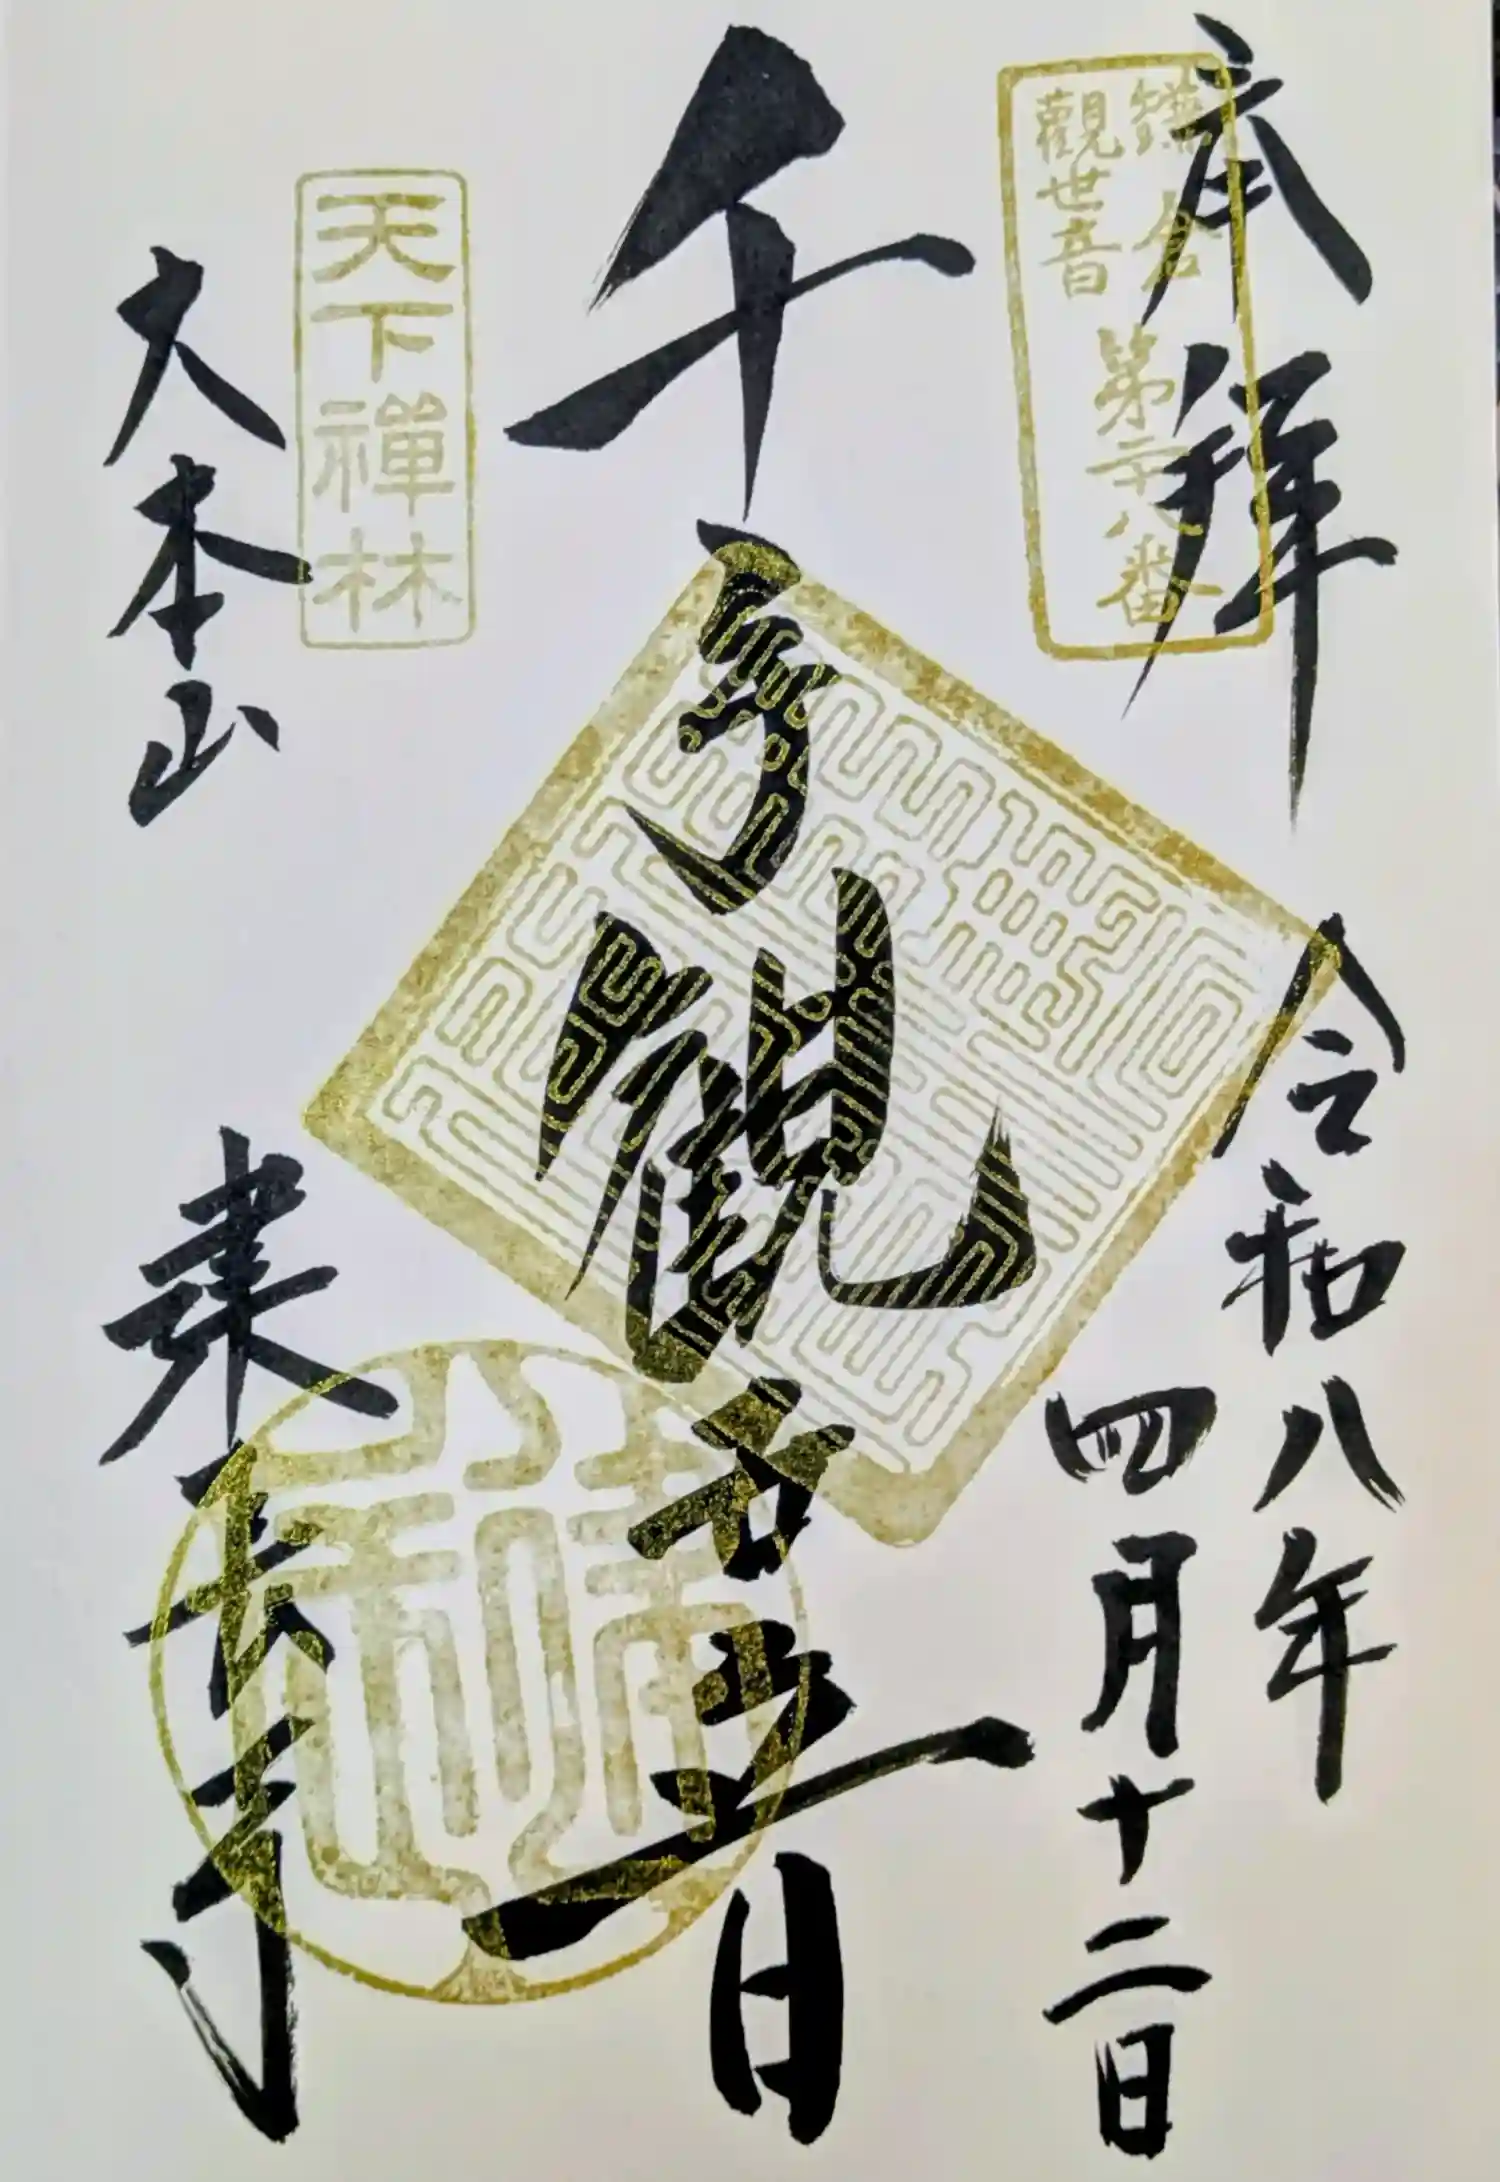 奉拝
鎌倉
觀世音
第二十八番
令和八年
四月十二日
千手観世音
天下禪林
大本山
建長寺